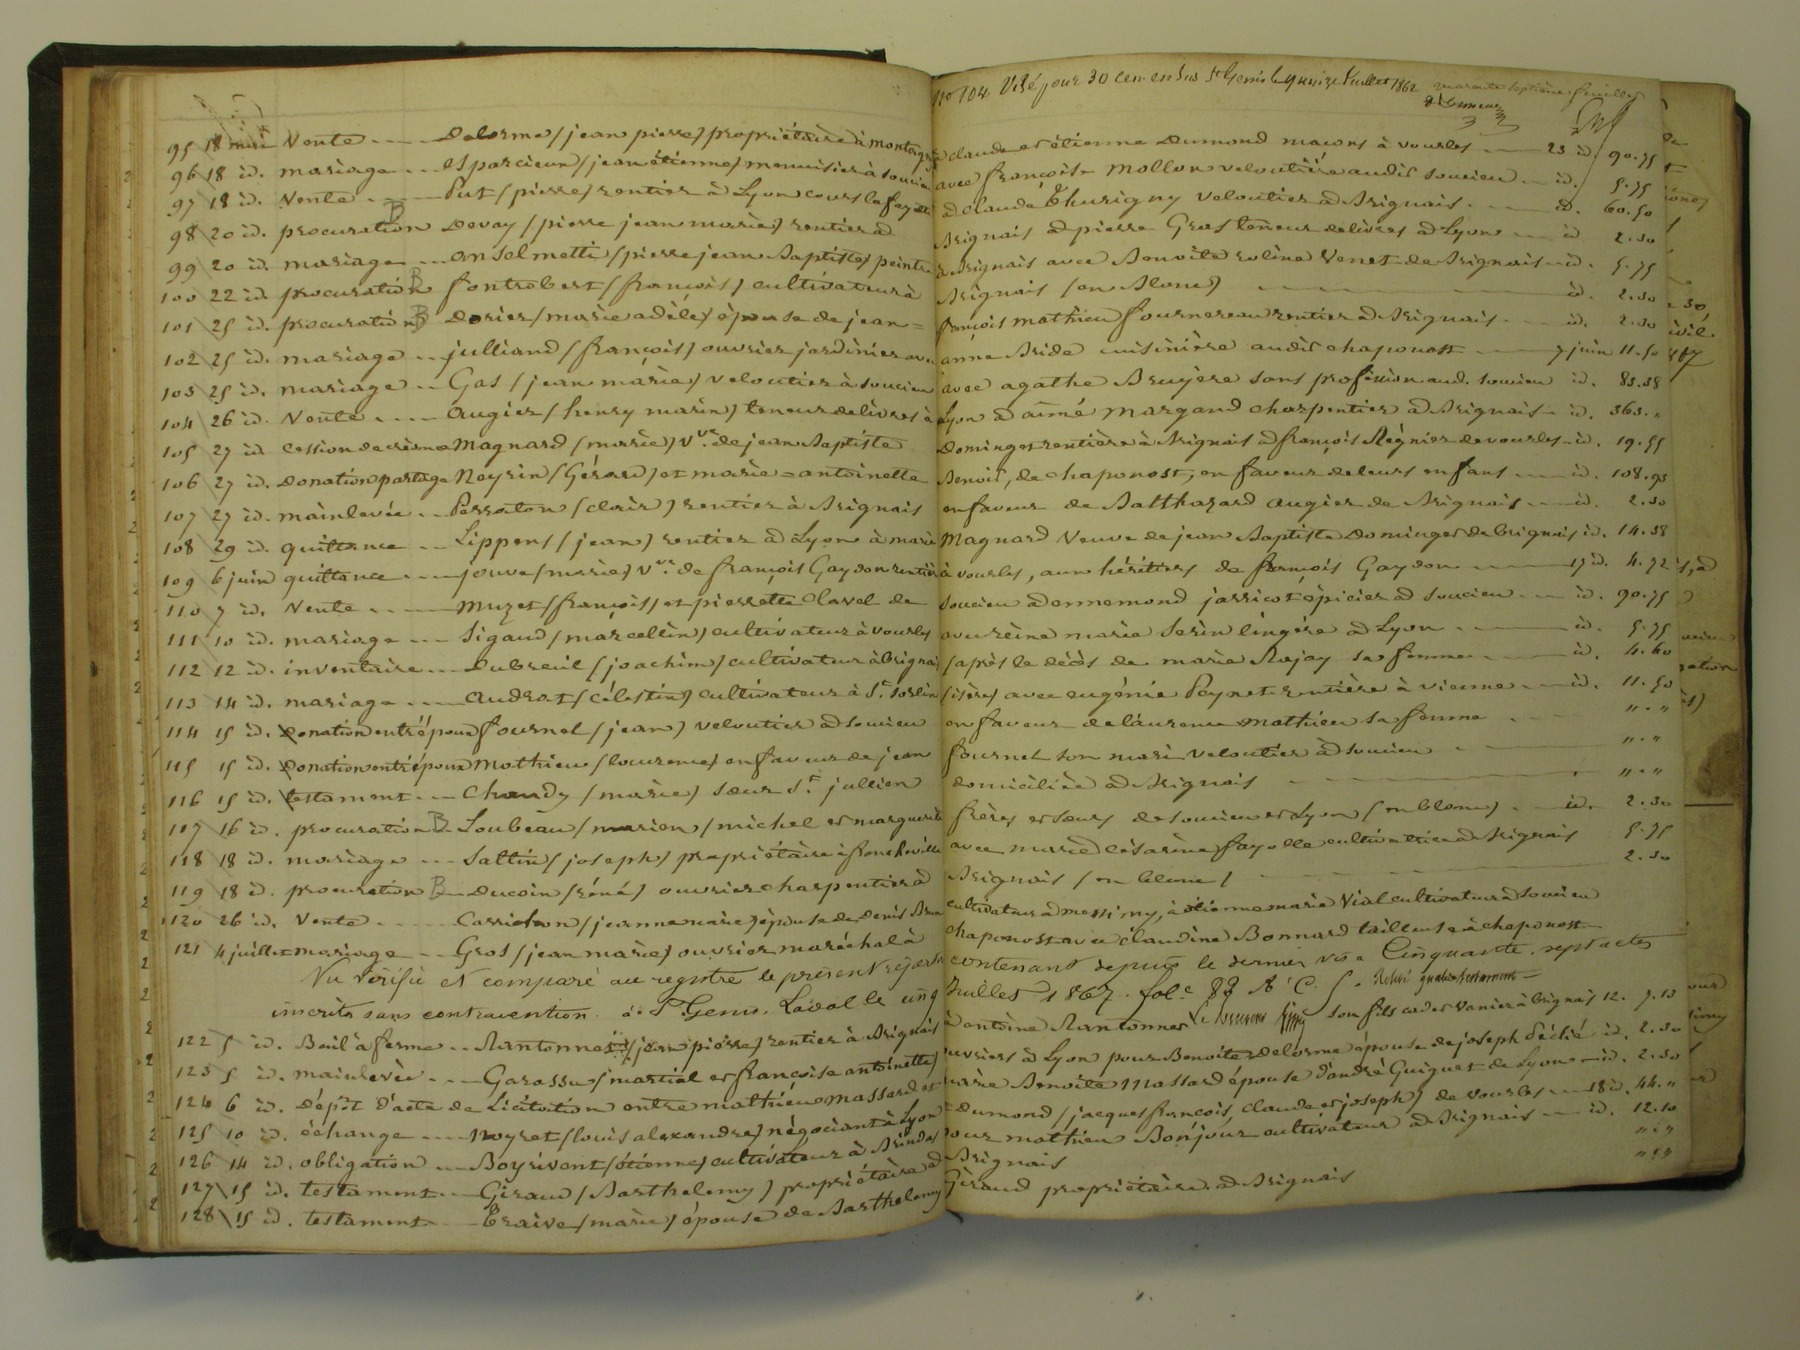 no 104 Visé pour 30 cen. en sus St Genis le quinze Juillet 1862 quarante septième feuillet
95 18 mai Vente Delorme (jean pierre) propriétaire à montagny à claude et étienne Dumond maçons à vourles 23 id. 90.75
96 18 id. mariage esparcieux (jean étienne) menuisier à soucieu avec françoise mollon veloutière audit soucieu id. 5.75
97 18 id. Vente Put (pierre) rentier à Lyon cours lafayette à claude Thurigny veloutier à Brignais id. 60.50
98 20 id. procuration B Devay (pierre jean marie) rentier à Brignais à pierre Gros teneur de livres à Lyon id 2.30
99 20 id. mariage anselmetti (pierre jean Baptiste) peintre à Brignais avec Benoite Venet de Brignais id. 5.75
100 22 id. procuration B fontrobert (françois) cultivateur à Brignais (en Blanc) id. 2.30
101 25 id. procuration B Dorier (marie adèle) épouse de jean = françois mathieu fournereau rentier à Brignais id. 2.30
102 25 id. mariage julliand (françois) ouvrier jardinier avec anne Bride cuisinière audit chaponost 7 juin 11.50
103 25 id. mariage Gas (jean marie) veloutier à soucieu avec agathe Bruyère sans profession aud. soucieu id. 83.38
104 26 id. Vente augier (henry marin) teneur de livres à Lyon à aimé margand charpentier à Brignais id. 363.„
105 27 id cession de créance Magnard (marie) Vve. de jean Baptiste Dominget rentière à Brignais à françois Régnier de vourles id. 19.55
106 27 id. Donation partage Neyrin (Gérard) et marie = antoinette Benoit, de chaponost, en faveur de leurs enfans id. 108.93
107 27 id. mainlevée Perraton (clair) rentier à Brignais en faveur de Balthazard augier de Brignais id. 2.30
108 29 id. quittance Lippens (jean) rentier à Lyon à marie Magnard Veuve de jean Baptiste Dominget de brignais id. 14.38
109 6 juin quittance jouve (marie) Vve. de françois Gaydon rentière à vourles, aux héritiers de françois Gaydon 17 id. 4.72
110 7 id. Vente muzet (françois) et pierrette Clavel de soucieu à ennemond jarricot épicier à soucieu id. 90.75
111 10 id. mariage Sigaud (marcellin) cultivateur à vourles avec reine marie Serin lingère à Lyon id. 5.75
112 12 id. inventaire Dubreuil (joachim) cultivateur à brignais (après le décès de marie Rojay sa femme id. 4.60
113 14 id. mariage audrat (célestin) cultivateur à St. sorlin (isère) avec eugénie Peynet rentière à vienne id. 11.50
114 15 id. Donation entre époux fournel (jean) veloutier à soucieu en faveur de laurence mathieu sa femme „.„
115 15 id. Donation entre époux mathieu (laurence) en faveur de jean fournel son mari veloutier à soucieu „.„
116 15 id. testament Chandy (marie) sœur St. jullien domiciliée à Brignais „.„
117 16 id. procuration B Loubeau (marion) michel et marguerite frères et sœurs de soucieu et Lyon (en blanc) id. 2.30
118 18 id. mariage Sattin (joseph) propriétaire à francheville avec marie césarine fayolle cultivatrice à Brignais 5.75
119 18 id. procuration B Ducoin (réné) ouvrier charpentier à Brignais (en blanc) 2.30
120 26 id. Vente Carrichon (jeanne marie) épouse de Denis Brun cultivateur à messimy, à étienne marie Vial cultivateur à soucieu
121 4 juillet mariage Gros (jean marie) ouvrier maréchal à chaponost avec claudine Bonnard tailleuse à chaponost
Vu vérifié et comparé au registre le présent répertoire contenant depuis le dernier visa Cinquante-sept actes
inscrits sans contravention à St Genis Laval le cinq Juillet 1867. fol. 88
122 5 id. Bail à ferme Rantonnet (jean pierre) rentier à Brignais à antoine Rantonnet son fils à brignais 12. 7.13
123 5 id. mainlevée Garassu (martial et françoise antoinette) ouvriers à Lyon pour Benoite Delorme épouse de joseph Déchié id. 2.30
124 6 id. Dépôt d'acte de Licitation entre mathieu massard et marie Benoite Massard épouse d'andré Guiguet de Lyon id. 2.30
125 10 id. échange noyret (louis alexandre) négociant à Lyon et Dumond (jacques françois, claude et joseph) de vourles 18 id. 44.„
126 14 id. obligation Boyrivent (étienne) cultivateur à Brindas pour mathieu Bonjour cultivateur à Brignais id. 12.10
127 15 id. testament Giraud (Barthelemy) propriétaire à Brignais „.„
128 15 id. testament Traive (marie) épouse de Barthelemy Giraud propriétaire à Brignais „.„